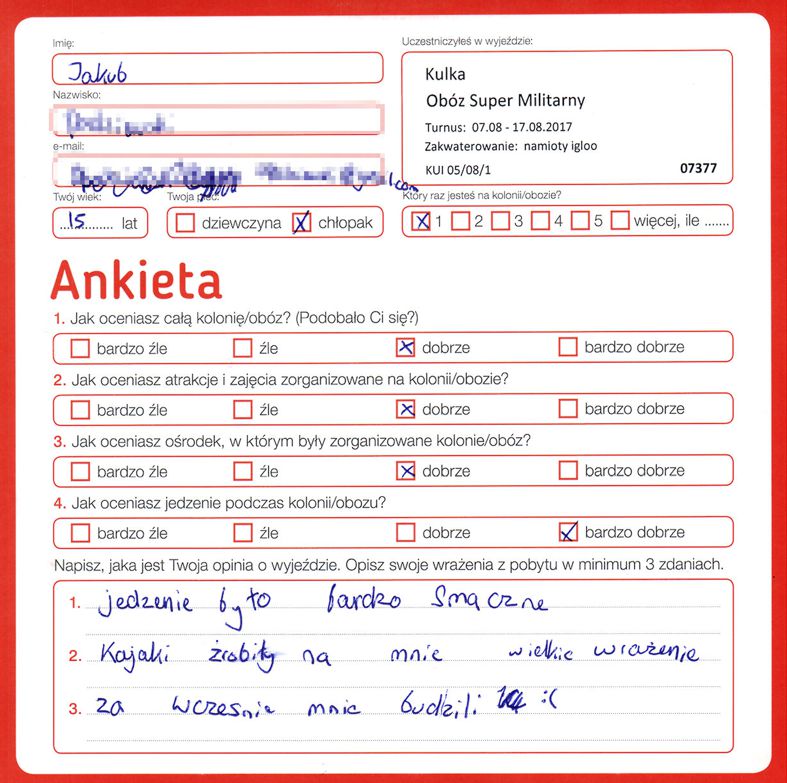 Imię:
Uczestniczyłeś w wyjeździe:
Jakub
Kulka
Obóz Super Militarny
Turnus: 07.08 - 17.08.2017
Zakwaterowanie: namioty igloo
KUI 05/08/1 07377
Nazwisko:
e-mail:
Twój wiek:
Twoja płeć:
Który raz jesteś na kolonii/obozie?
...15.......... lat
dziewczyna X chłopak
X 1 2 3 4 5 więcej, ile .......
Ankieta
1. Jak oceniasz całą kolonię/obóz? (Podobało Ci się?)
bardzo źle źle X dobrze bardzo dobrze
2. Jak oceniasz atrakcje i zajęcia zorganizowane na kolonii/obozie?
bardzo źle źle X dobrze bardzo dobrze
3. Jak oceniasz ośrodek, w którym były zorganizowane kolonie/obóz?
bardzo źle źle X dobrze bardzo dobrze
4. Jak oceniasz jedzenie podczas kolonii/obozu?
bardzo źle źle dobrze X bardzo dobrze
Napisz, jaka jest Twoja opinia o wyjeździe. Opisz swoje wrażenia z pobytu w minimum 3 zdaniach.
1. jedzenie było bardzo smaczne
2. Kajaki zrobiły na mnie wielkie wrażenie
3. za wczesnie mnie budzili :(